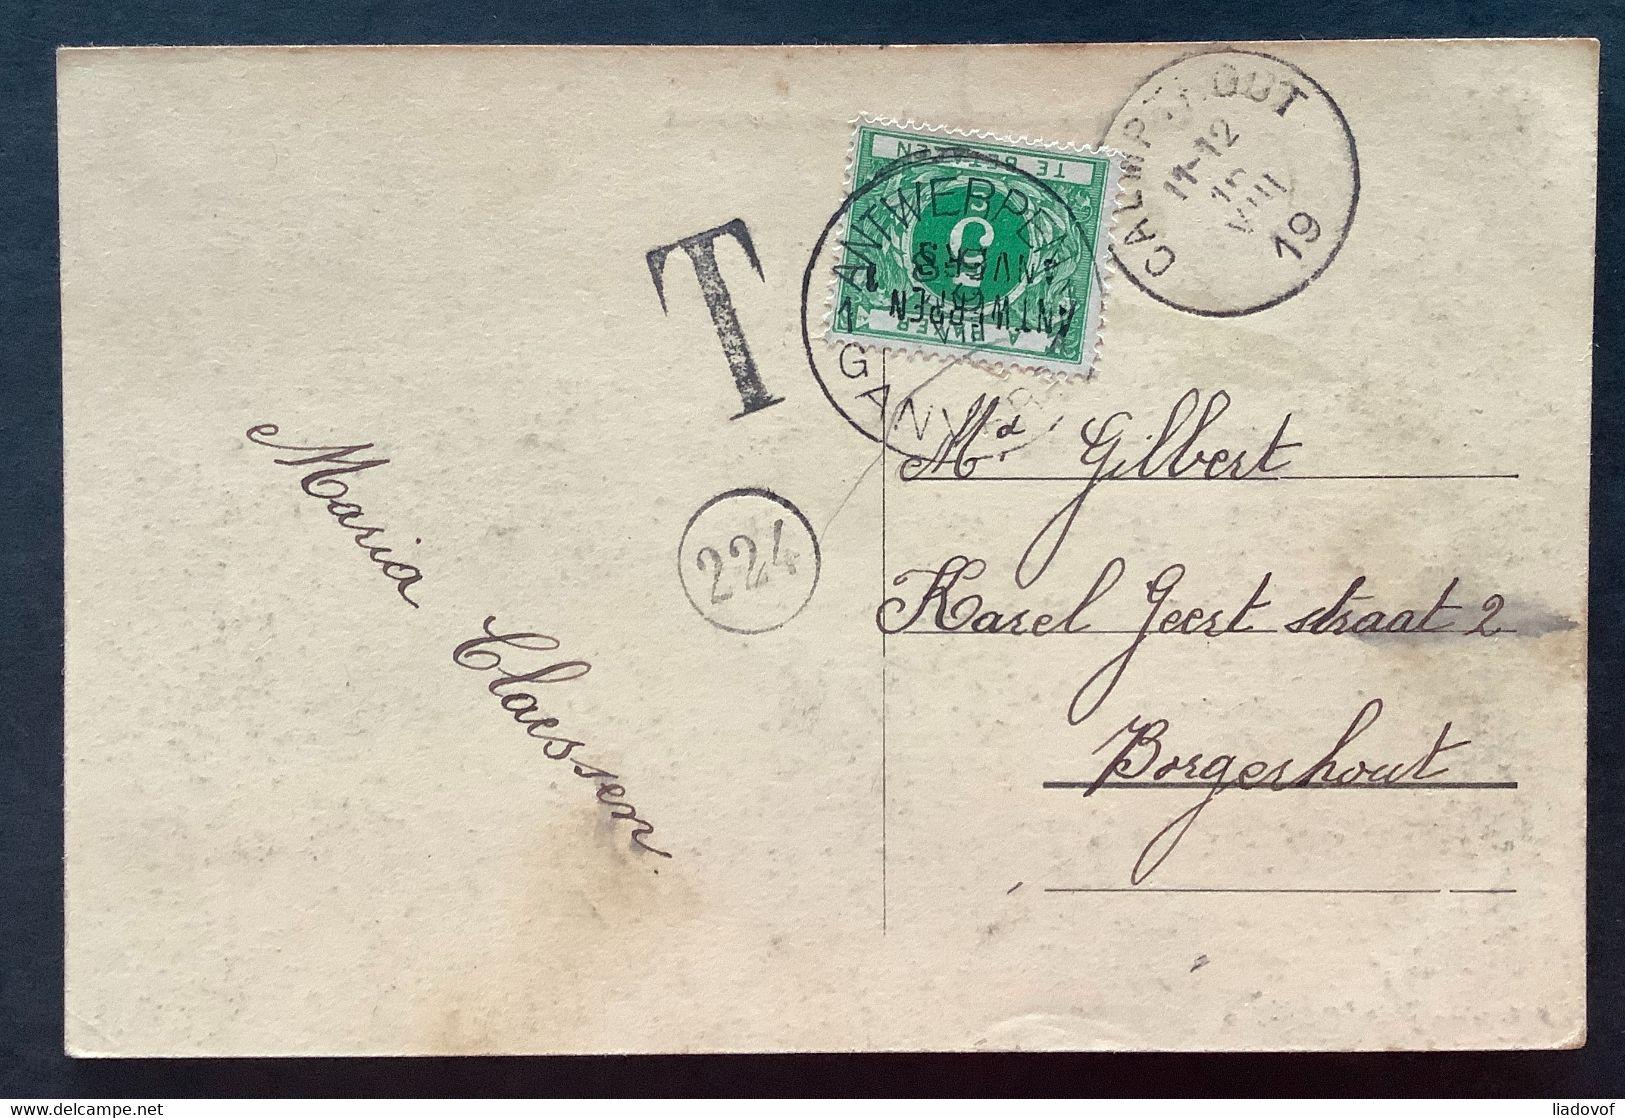 CALMPTHOUT
11-12
VIII
19
TE BETALEN
5
ANTWERPEN
ANVERS
A PAYER
ANTWERPEN 1
1 ANVERS
T
224
Maria Claessen
Md Gilbert
Karel Geert straat 2
Borgerhout
delcampe.net
liadovof